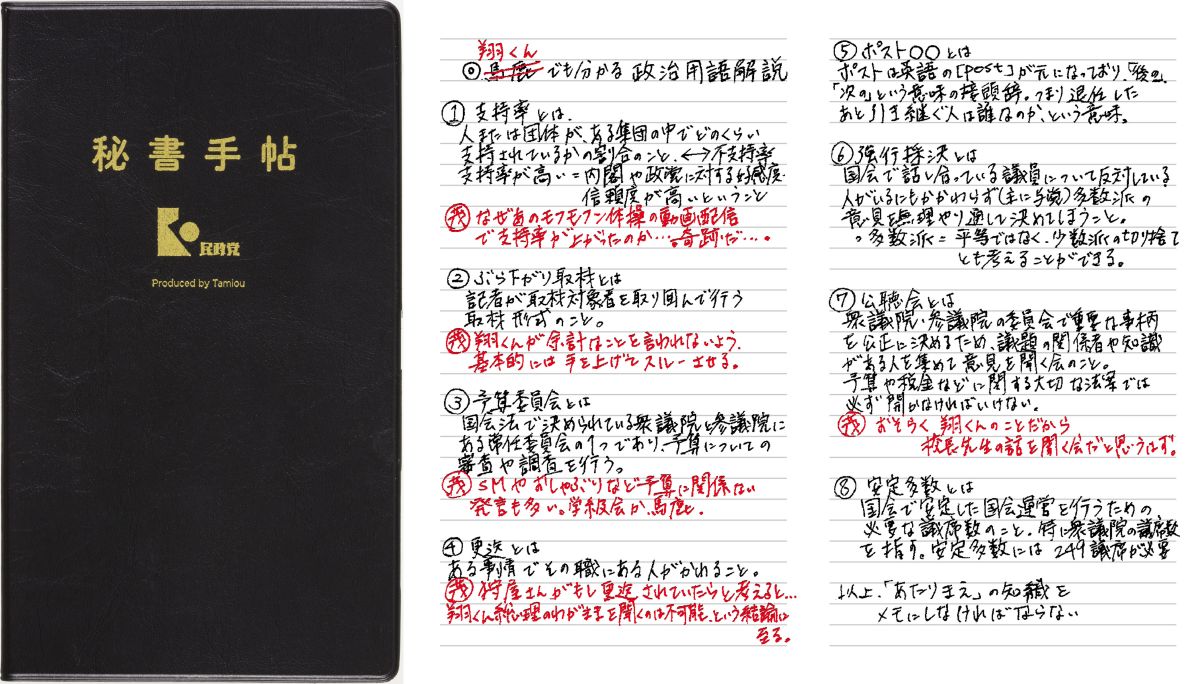 秘書手帖
民政党
Produced by Tamiou
翔くん
◎馬鹿でも分かる政治用語解説
①支持率とは、
人または団体が、ある集団の中でどのくらい
支持されているかの割合のこと、⟷不支持率
支持率が高い=内閣や政策に対する好感度・
信頼度が高いということ
茂 なぜあのモフモフン体操の動画配信
で支持率が上がったのか…。奇跡だ…。
②ぶら下がり取材とは
記者が取材対象者を取り囲んで行う
取材形式のこと。
茂 翔くんが余計なことを言われないよう、
基本的には手を上げてスルーさせる。
③予算委員会とは
国会法で決められている衆議院と参議院に
ある常任委員会の1つであり、予算についての
審査や調査を行う。
茂 SMやおしゃぶりなど予算に関係ない
発言も多い。学級会か、馬鹿。
④更迭とは
ある事情でその職にある人がかわること。
茂 狩屋さんがもし更迭されていたらと考えると…
翔くん総理のわがままを聞くのは不可能、という結論に
至る。
⑤ポスト〇〇とは
ポストは英語の[post]が元になっており、「後の」、
「次の」という意味の接頭辞。つまり退任した
あと引き継ぐ人は誰なのか、という意味。
⑥強行採決とは
国会で話し合っている議員について反対している
人がいるにもかかわらず(主に与党)多数派の
意見を無理やり通して決めてしまうこと。
。多数派=平等ではなく、少数派の切り捨て
とも考えることができる。
⑦公聴会とは
衆議院・参議院の委員会で重要な事柄
を公正に決めるため、議題の関係者や知識
がある人を集めて意見を聞く会のこと。
予算や税金などに関する大切な法案では
必ず開かなければいけない。
茂 おそらく、翔くんのことだから
校長先生の話を聞く会だと思うはず。
⑧安定多数とは
国会で安定した国会運営を行うための、
必要な議席数のこと、特に衆議院の議席数
を指す。安定多数には249議席が必要
以上、「あたりまえ」の知識を
メモにしなければならない